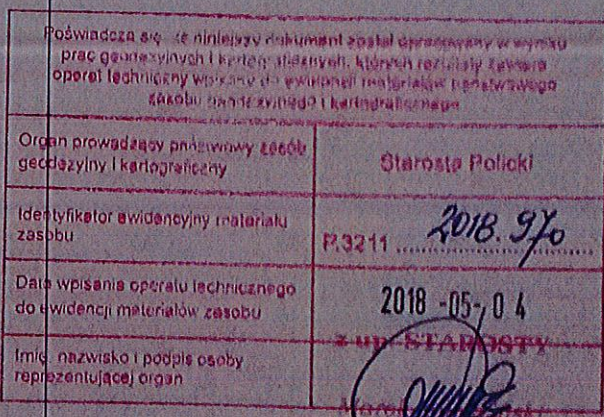 Poświadcza się, że niniejszy dokument został opracowany w wyniku
prac geodezyjnych i kartograficznych, których rezultaty zawiera
operat techniczny wpisany do ewidencji materiałów państwowego
zasobu geodezyjnego i kartograficznego
Organ prowadzący państwowy zasób
geodezyjny i kartograficzny
Starosta Policki
Identyfikator ewidencyjny materiału
zasobu
P.3211 ..... 2018.970
Data wpisania operatu technicznego
do ewidencji materiałów zasobu
2018 -05- 0 4
Imię, nazwisko i podpis osoby
reprezentującej organ
z up. STAROSTY